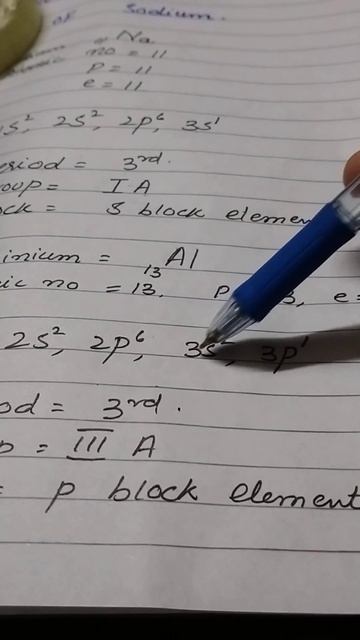 OF Sodium.
Na
no = 11
P = 11
e = 11
s², 2s², 2p⁶, 3s¹
eriod = 3rd.
oup = I A
ock = S block elemen
inium = ₁₃Al
ic no = 13, P 3, e =
2s², 2p⁶, 3s², 3p¹
od = 3rd.
p = III A
= p block element